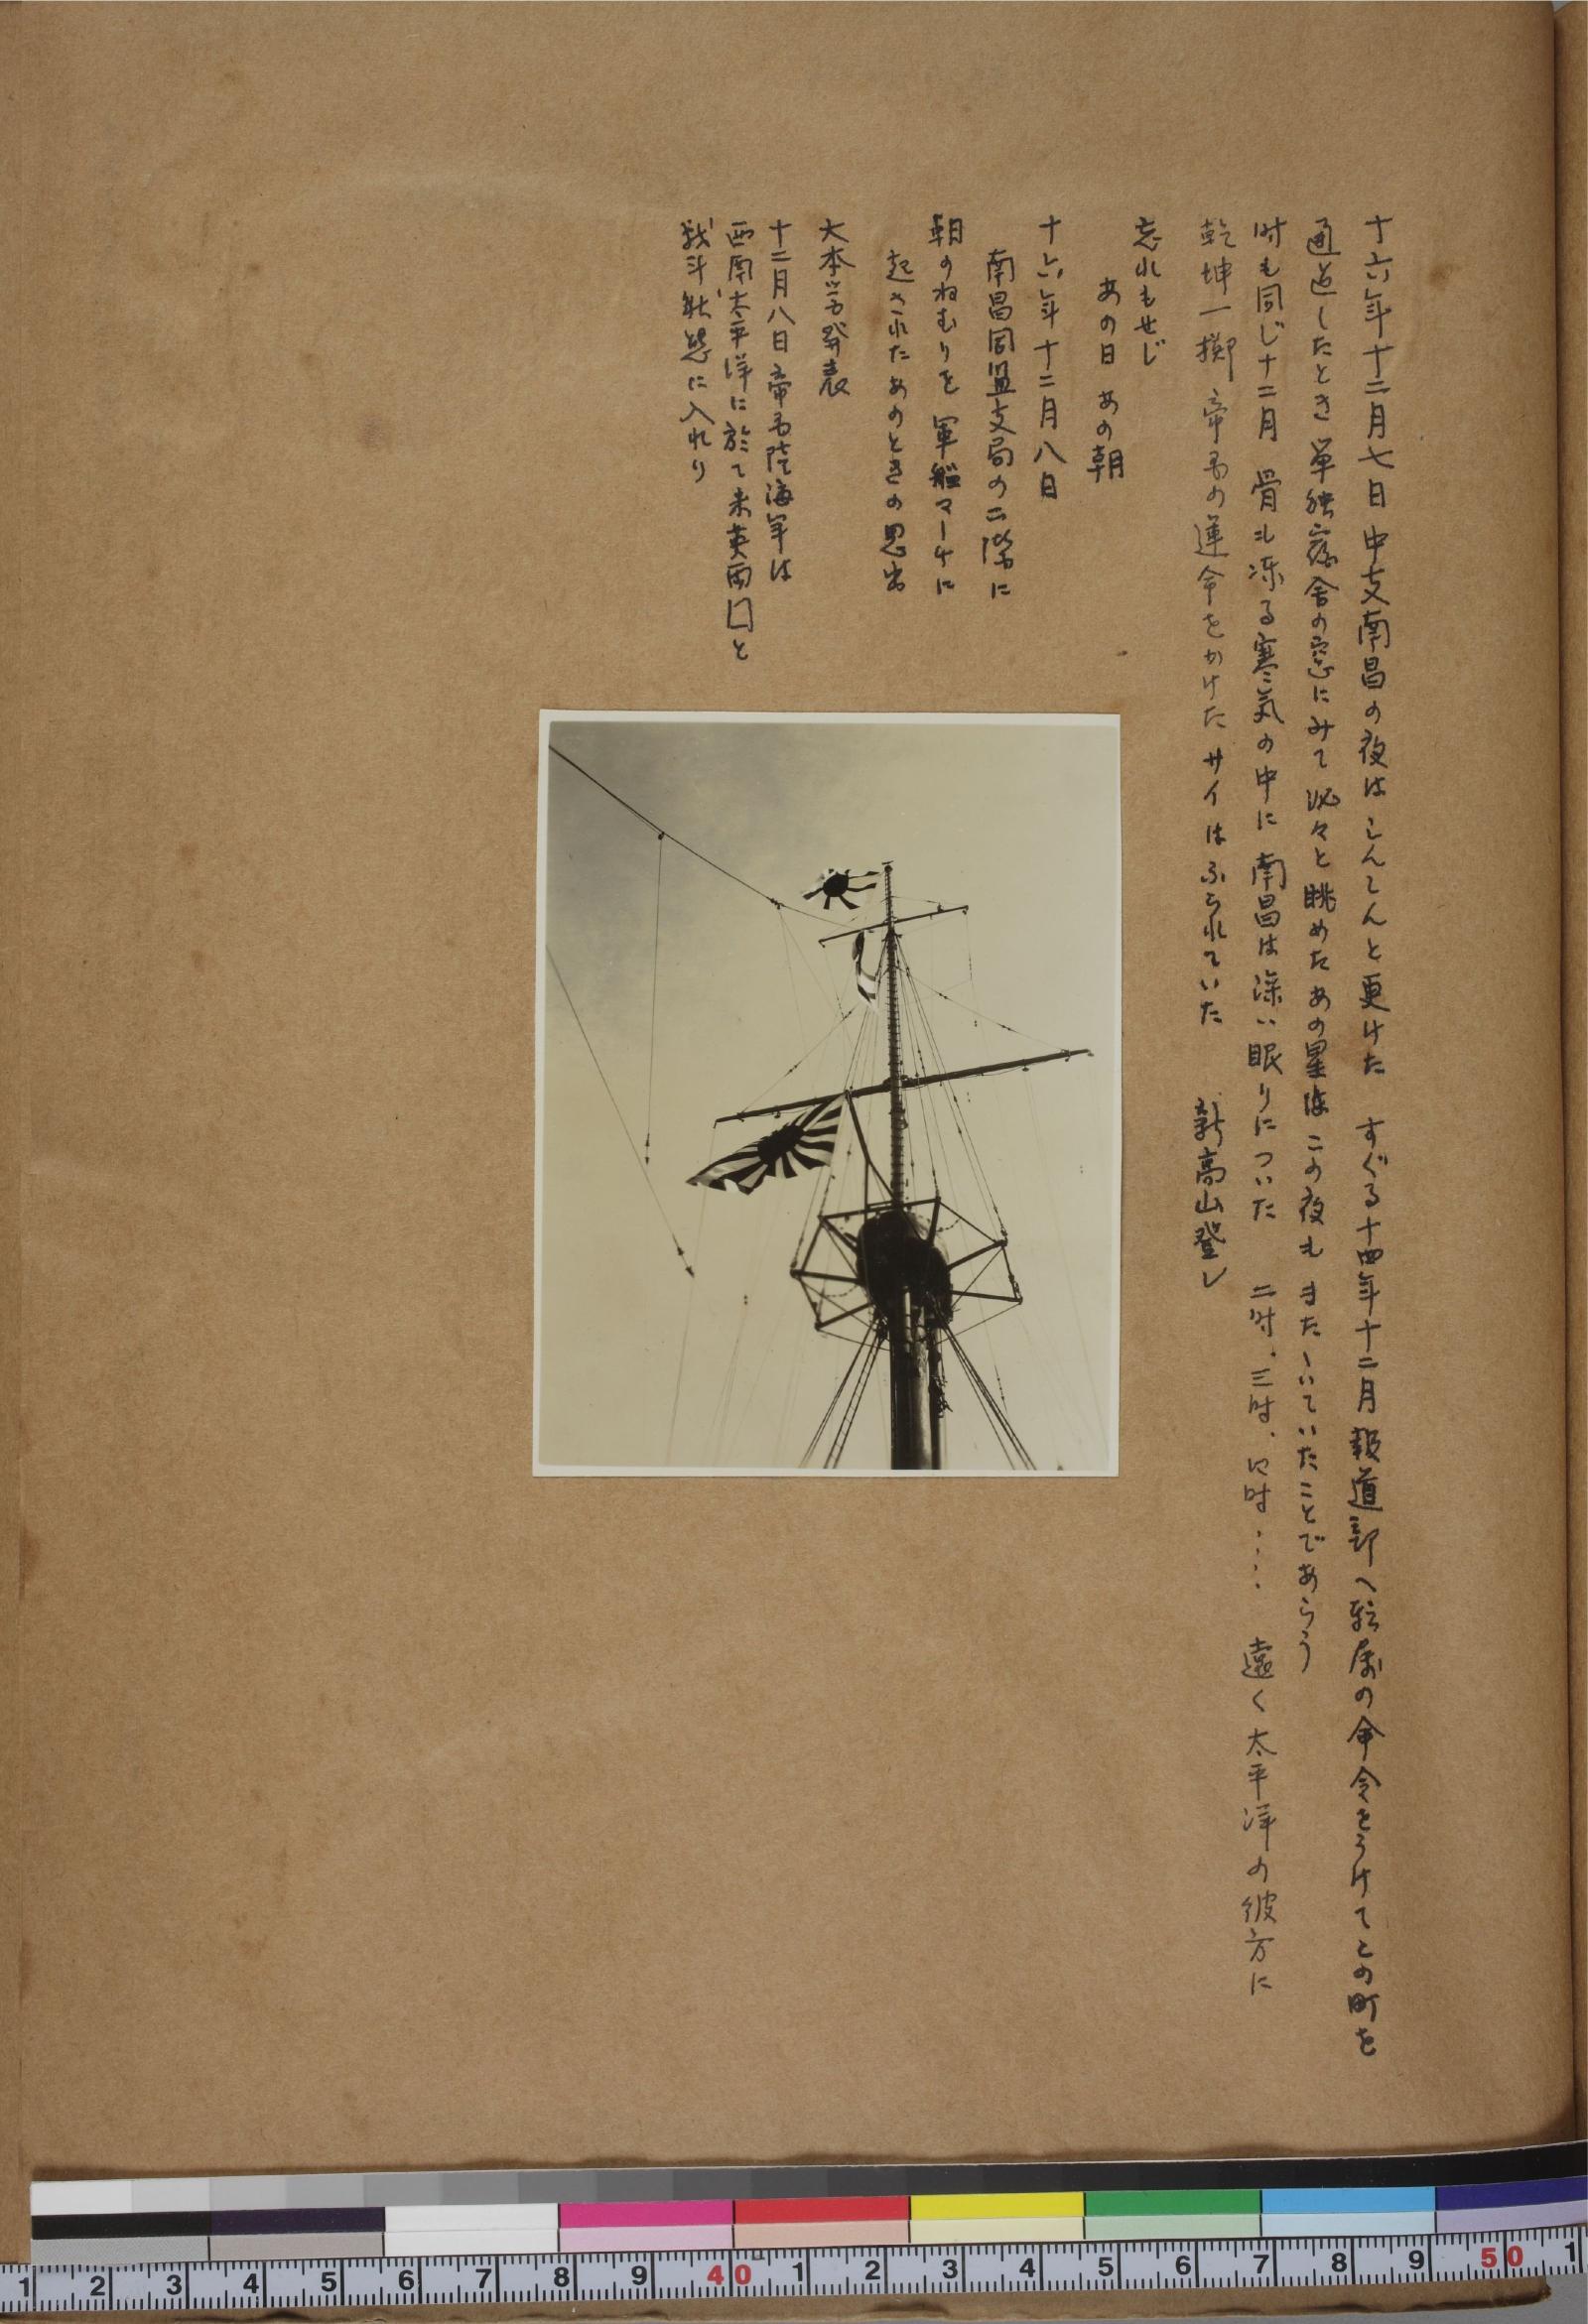 十六年十二月七日 中支南昌の夜はしんしんと更けた すぐる十四年十二月報道部へ転属の命令をうけてこの町を
通過したとき単独宿舎の窓にみて 泌々と眺めたあの星は この夜も またゝいていたことであらう
时も同じ十二月 骨も凍る寒氣の中に 南昌は深い眠りについた 二时、三时、四时‥‥ 遠く太平洋の彼方に
乾坤一擲 帝国の運命をかけた サイはふられていた 新高山登レ
忘れもせじ
あの日 あの朝
十六年十二月八日
南昌同盟支局の二階に
朝のねむりを 軍艦マーチに
起されたあのときの思出
大本営発表
十二月八日帝国陸海軍は
西南太平洋に於て米英両国と
戦斗状態に入れり
1 2 3 4 5 6 7 8 9 40 1 2 3 4 5 6 7 8 9 50 1